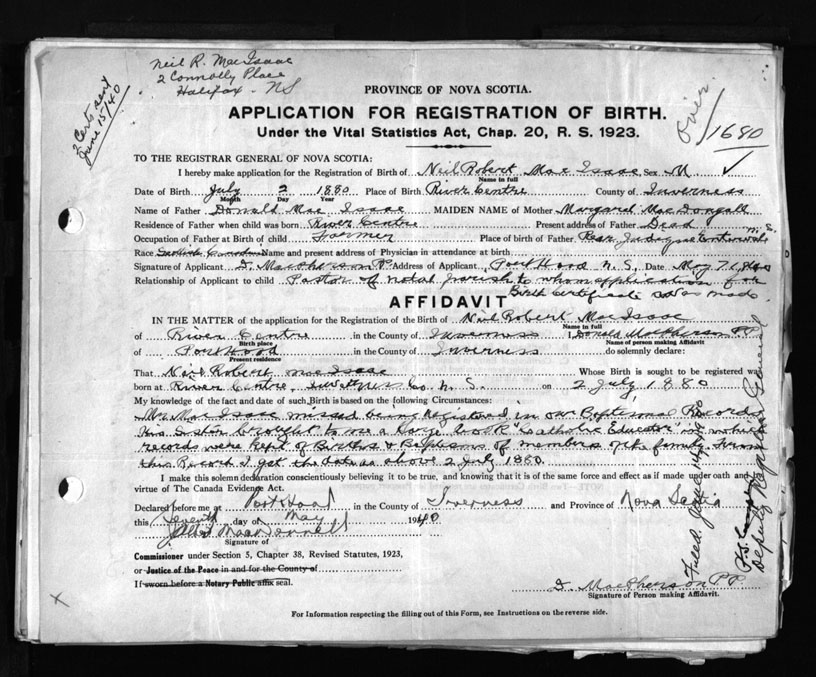 Neil R. MacIsaac
2 Connolly Place
Halifax - NS
2 Certs sent
June 15/40
Over
1680
PROVINCE OF NOVA SCOTIA.
APPLICATION FOR REGISTRATION OF BIRTH.
Under the Vital Statistics Act, Chap. 20, R. S. 1923.
TO THE REGISTRAR GENERAL OF NOVA SCOTIA:
I hereby make application for the Registration of Birth of Neil Robert Mac Isaac Sex M ✓
Name in full
Date of Birth July 2 1880 Place of Birth River Centre County of Inverness
Month Day Year
Name of Father Donald Mac Isaac MAIDEN NAME of Mother Margaret MacDougall
Residence of Father when child was born River Centre Present address of Father Dead
Occupation of Father at Birth of child Farmer Place of birth of Father Rear N.S.
Race Scotish Canadian Name and present address of Physician in attendance at birth
Signature of Applicant D. MacPherson P.P. Address of Applicant Port Hood N.S. Date May 7, 1940
Relationship of Applicant to child Pastor of natal parish to whom application for
Birth Certificate was made
AFFIDAVIT
IN THE MATTER of the application for the Registration of the Birth of Neil Robert Mac Isaac
Name in full
of River Centre in the County of Inverness I, Donald MacPherson P.P.
Birth place Name of person making Affidavit
of Port Hood in the County of Inverness do solemnly declare:
Present residence
That Neil Robert MacIsaac Whose Birth is sought to be registered was
born at River Centre, Inverness Co. N. S. on 2 July, 1880
My knowledge of the fact and date of such Birth is based on the following Circumstances:
Mr. Mac Isaac missed being registered in our Baptismal Records
His Sister brought to me a large book "Catholic Educator" in which
record were kept of Births & Baptisms of members of the family. From
this Record I get the date as above 2 July 1880.
I make this solemn declaration conscientiously believing it to be true, and knowing that it is of the same force and effect as if made under oath and
virtue of The Canada Evidence Act.
Declared before me at Port Hood in the County of Inverness and Province of Nova Scotia
this Seventh day of May 1940
MacDonnell
Signature of
Commissioner under Section 5, Chapter 38, Revised Statutes, 1923,
or Justice of the Peace in and for the County of
If sworn before a Notary Public affix seal.
D. MacPherson P.P.
Signature of Person making Affidavit.
For Information respecting the filling out of this Form, see Instructions on the reverse side.
Filed June 14, 1940
Deputy Registrar General